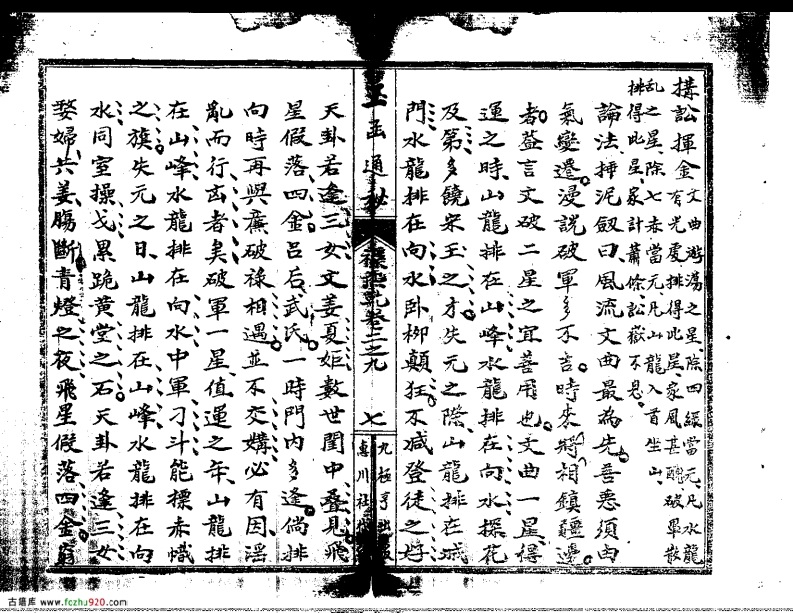 搆訟揮金文曲遊蕩之星除四綠當元凡水龍
有光處排得此星家風甚醜破軍散
亂之星除七赤當元凡山龍入首坐山
排得此星家計蕭條訟獄不息
論法捶泥劔曰風流文曲最為先善惡須由
氣變遷漫說破軍多不吉時來將相鎮疆邊
者葢言文破二星之宜善用也文曲一星得
運之時山龍排在山峰水龍排在向水探花
及第多饒宋玉之才失元之際山龍排在城
門水龍排在向水卧柳顛狂不減登徒之好
玉函通秘
卷二之九
七
九極亨出版
惠川社
天卦若逢三女文姜夏姬數世閨中叠見飛
星假落四金呂后武氏一時門内多逢倘排
向時再與廉破祿相遇並不交媾必有因淫
亂而行凶者矣破軍一星值運之年山龍排
在山峰水龍排在向水中軍刁斗能標赤幟
之旗失元之日山龍排在山峰水龍排在向
水同室操戈累跪黄堂之石天卦若逢三女
婺婦共姜腸斷青燈之夜飛星假落四金窮
古籍库 www.fczhu920.com